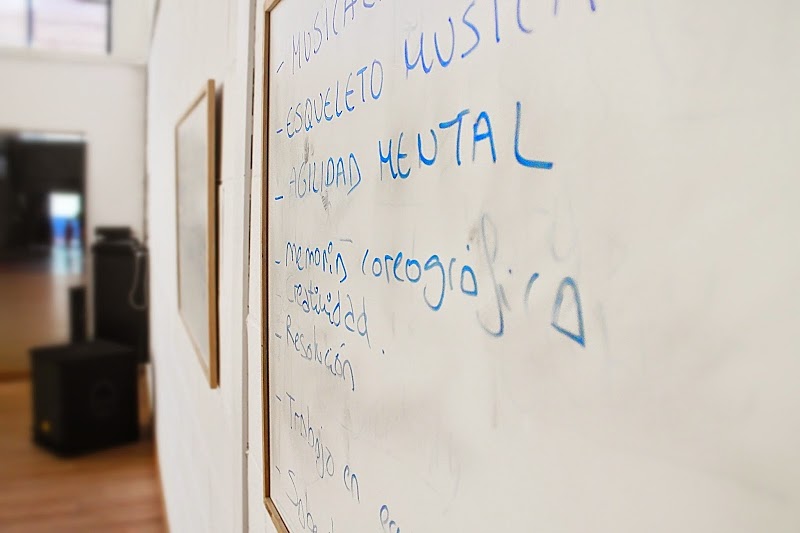 - ESQUELETO MUSICAL
- AGILIDAD MENTAL
- Memoria coreográfica
- Creatividad.
- Resolución
- Trabajo en